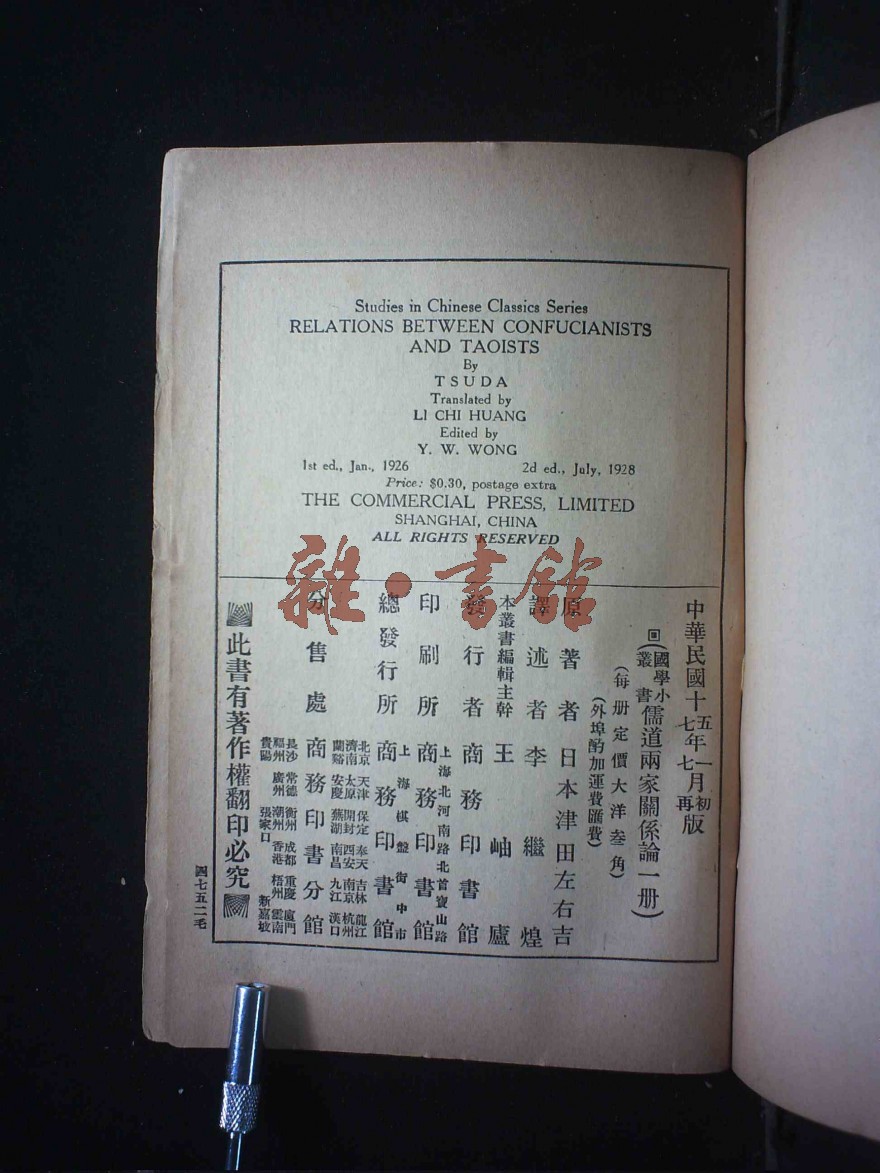 Studies in Chinese Classics Series
RELATIONS BETWEEN CONFUCIANISTS
AND TAOISTS
By
TSUDA
Translated by
LI CHI HUANG
Edited by
Y. W. WONG
1st ed., Jan., 1926 2d ed., July, 1928
Price: $0.30, postage extra
THE COMMERCIAL PRESS, LIMITED
SHANGHAI, CHINA
ALL RIGHTS RESERVED
雜·書館
中華民國十五年一月初版
七年七月再版
(國學小叢書)儒道兩家關係論一册)
(每册定價大洋叁角)
(外埠酌加運費匯費)
原著者 日本津田左右吉
譯述者 李繼煌
本叢書編輯主幹 王岫廬
發行者 商務印書館
印刷所 商務印書館 上海北河南路北首寶山路
總發行所 商務印書館 上海棋盤街中市
分售處 商務印書分館
北京 天津 保定 奉天 吉林 龍江
濟南 太原 開封 西安 南京 杭州
蘭谿 安慶 蕪湖 南昌 九江 漢口
長沙 常德 衡州 成都 重慶 廈門
福州 廣州 潮州 香港 梧州 雲南
貴陽 張家口 新嘉坡
此書有著作權翻印必究
四七五二毛